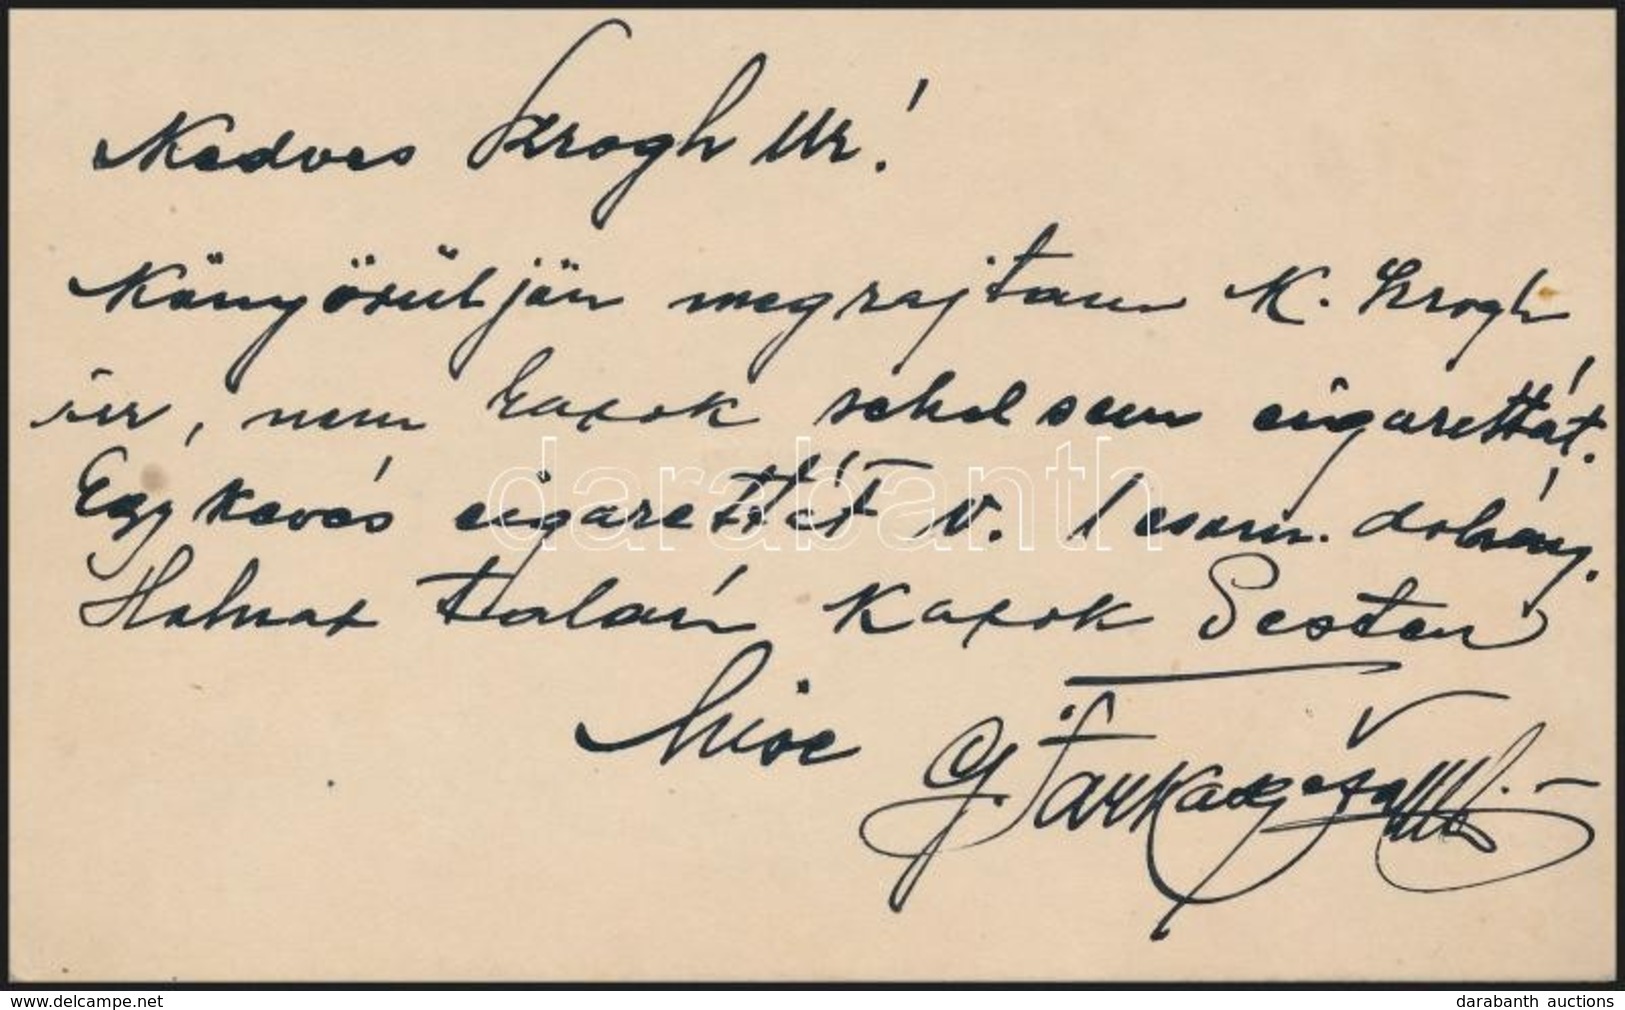 Kedves Krogh Ur!
Könyörüljön megrajtam K. Krogh
úr, nem kapok sehol sem cigarettát.
Egy kevés cigarettát v. 1 csom. dohány.
Holnap talán kapok Pesten
darabanth
G. Farkas
www.delcampe.net
darabanth auctions